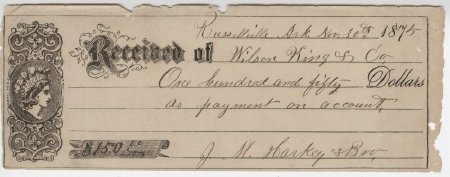 Russellville Ark Nov. 30th 1875
Received of Wilson King & Co
One hundred and fifty Dollars
as payment on account,
$150.00 J. M. Harkey & Bro,